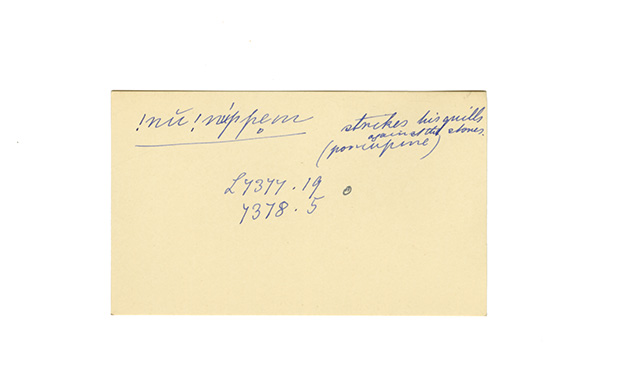 !nŭ !nắppẹm
strikes his quills
against the stones.
(porcupine)
L7377.19
7378.5